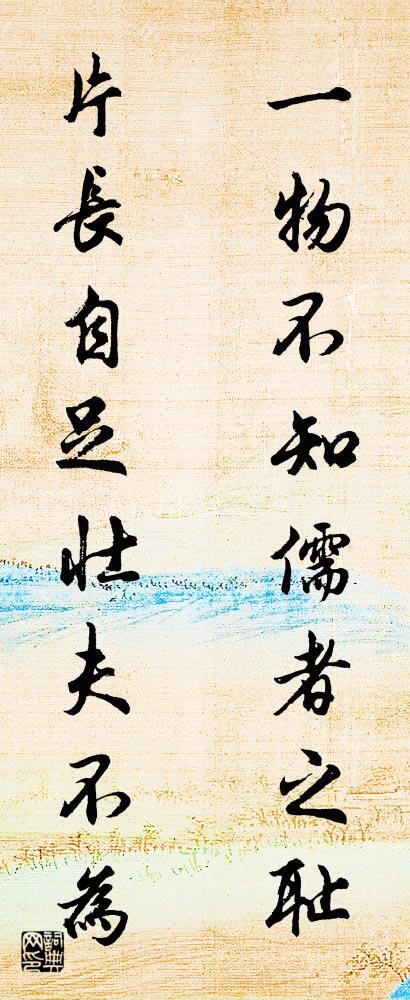 一物不知儒者之耻
片長自足壯夫不為
詞典网印